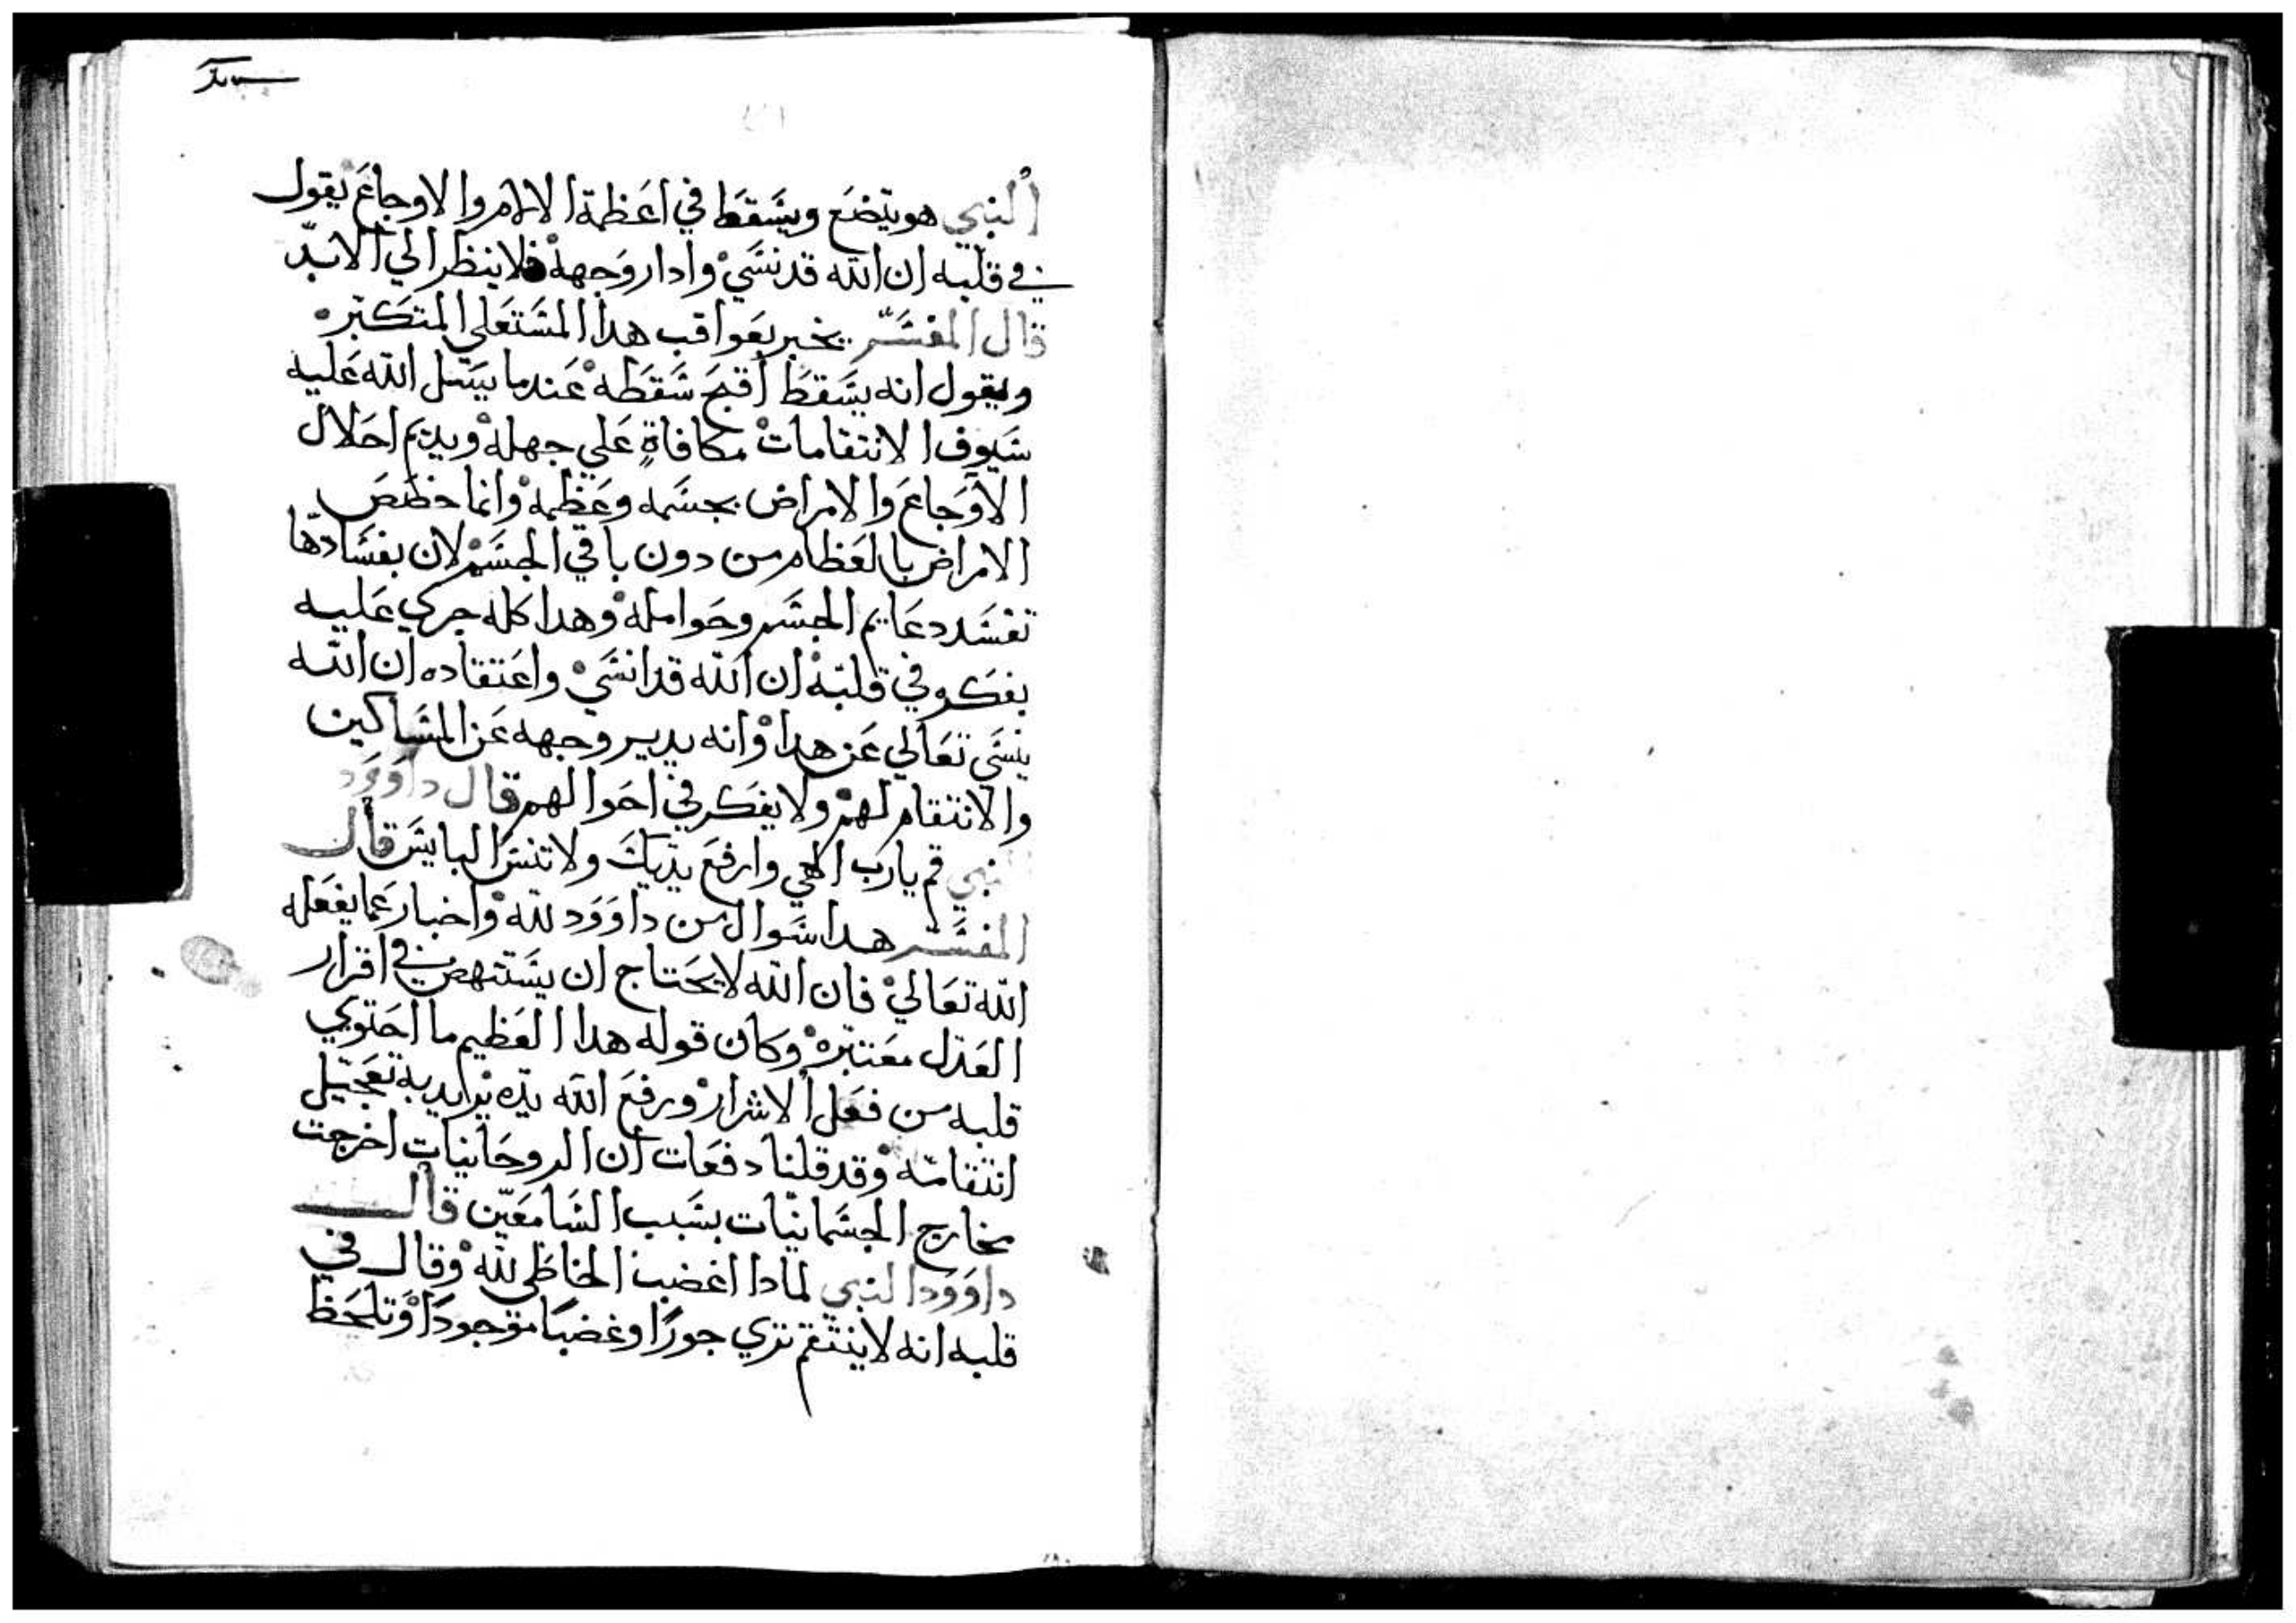 النبي هو يتضع ويسقط في اعظمة الالام والاوجاع يقول
في قلبه ان الله قد نسي وادار وجهه فلا ينظر الي الابد
قال المفسر يخبر بعواقب هدا المستعلي المتكبر
ويقول انه يسقط اقبح سقطه عندما يستل الله عليه
سيوف الانتقامات مكافاةٍ علي جهله ويديم احلال
الاوجاع والامراض بجسمه وعظمه وانما خصص
الامراض بالعظام من دون باقي الجسم لان بفسادها
تفسد دعايم الجسم وحوامله وهدا كله جري عليه
بفكره في قلبه ان الله قد انسي واعتقاده ان الله
ينسي تعالي عن هدا وانه يدير وجهه عن المساكين
والانتقام لهم ولا يفكر في احوالهم قال داوود
النبي قم يارب الاهي وارفع يديك ولا تنس البايس قال
المفسر هدا سوال من داوود لله واخبار عما يفعله
الله تعالي فان الله لا يحتاج ان يستنهض في اقرار
العدل معتبره وكان قوله هدا العظيم ما احتوي
قلبه من فعل الاشرار ورفع الله يده يراد به تعجيل
انتقامه وقد قلنا دفعات ان الروحانيات اخرجت
مخارج الجسمانيات بسبب السامعين قال
داوود النبي لمادا اغضب الخاطي لله وقال في
قلبه انه لا ينتقم تري جورًا وغضبًا موجودًا وتلحظ